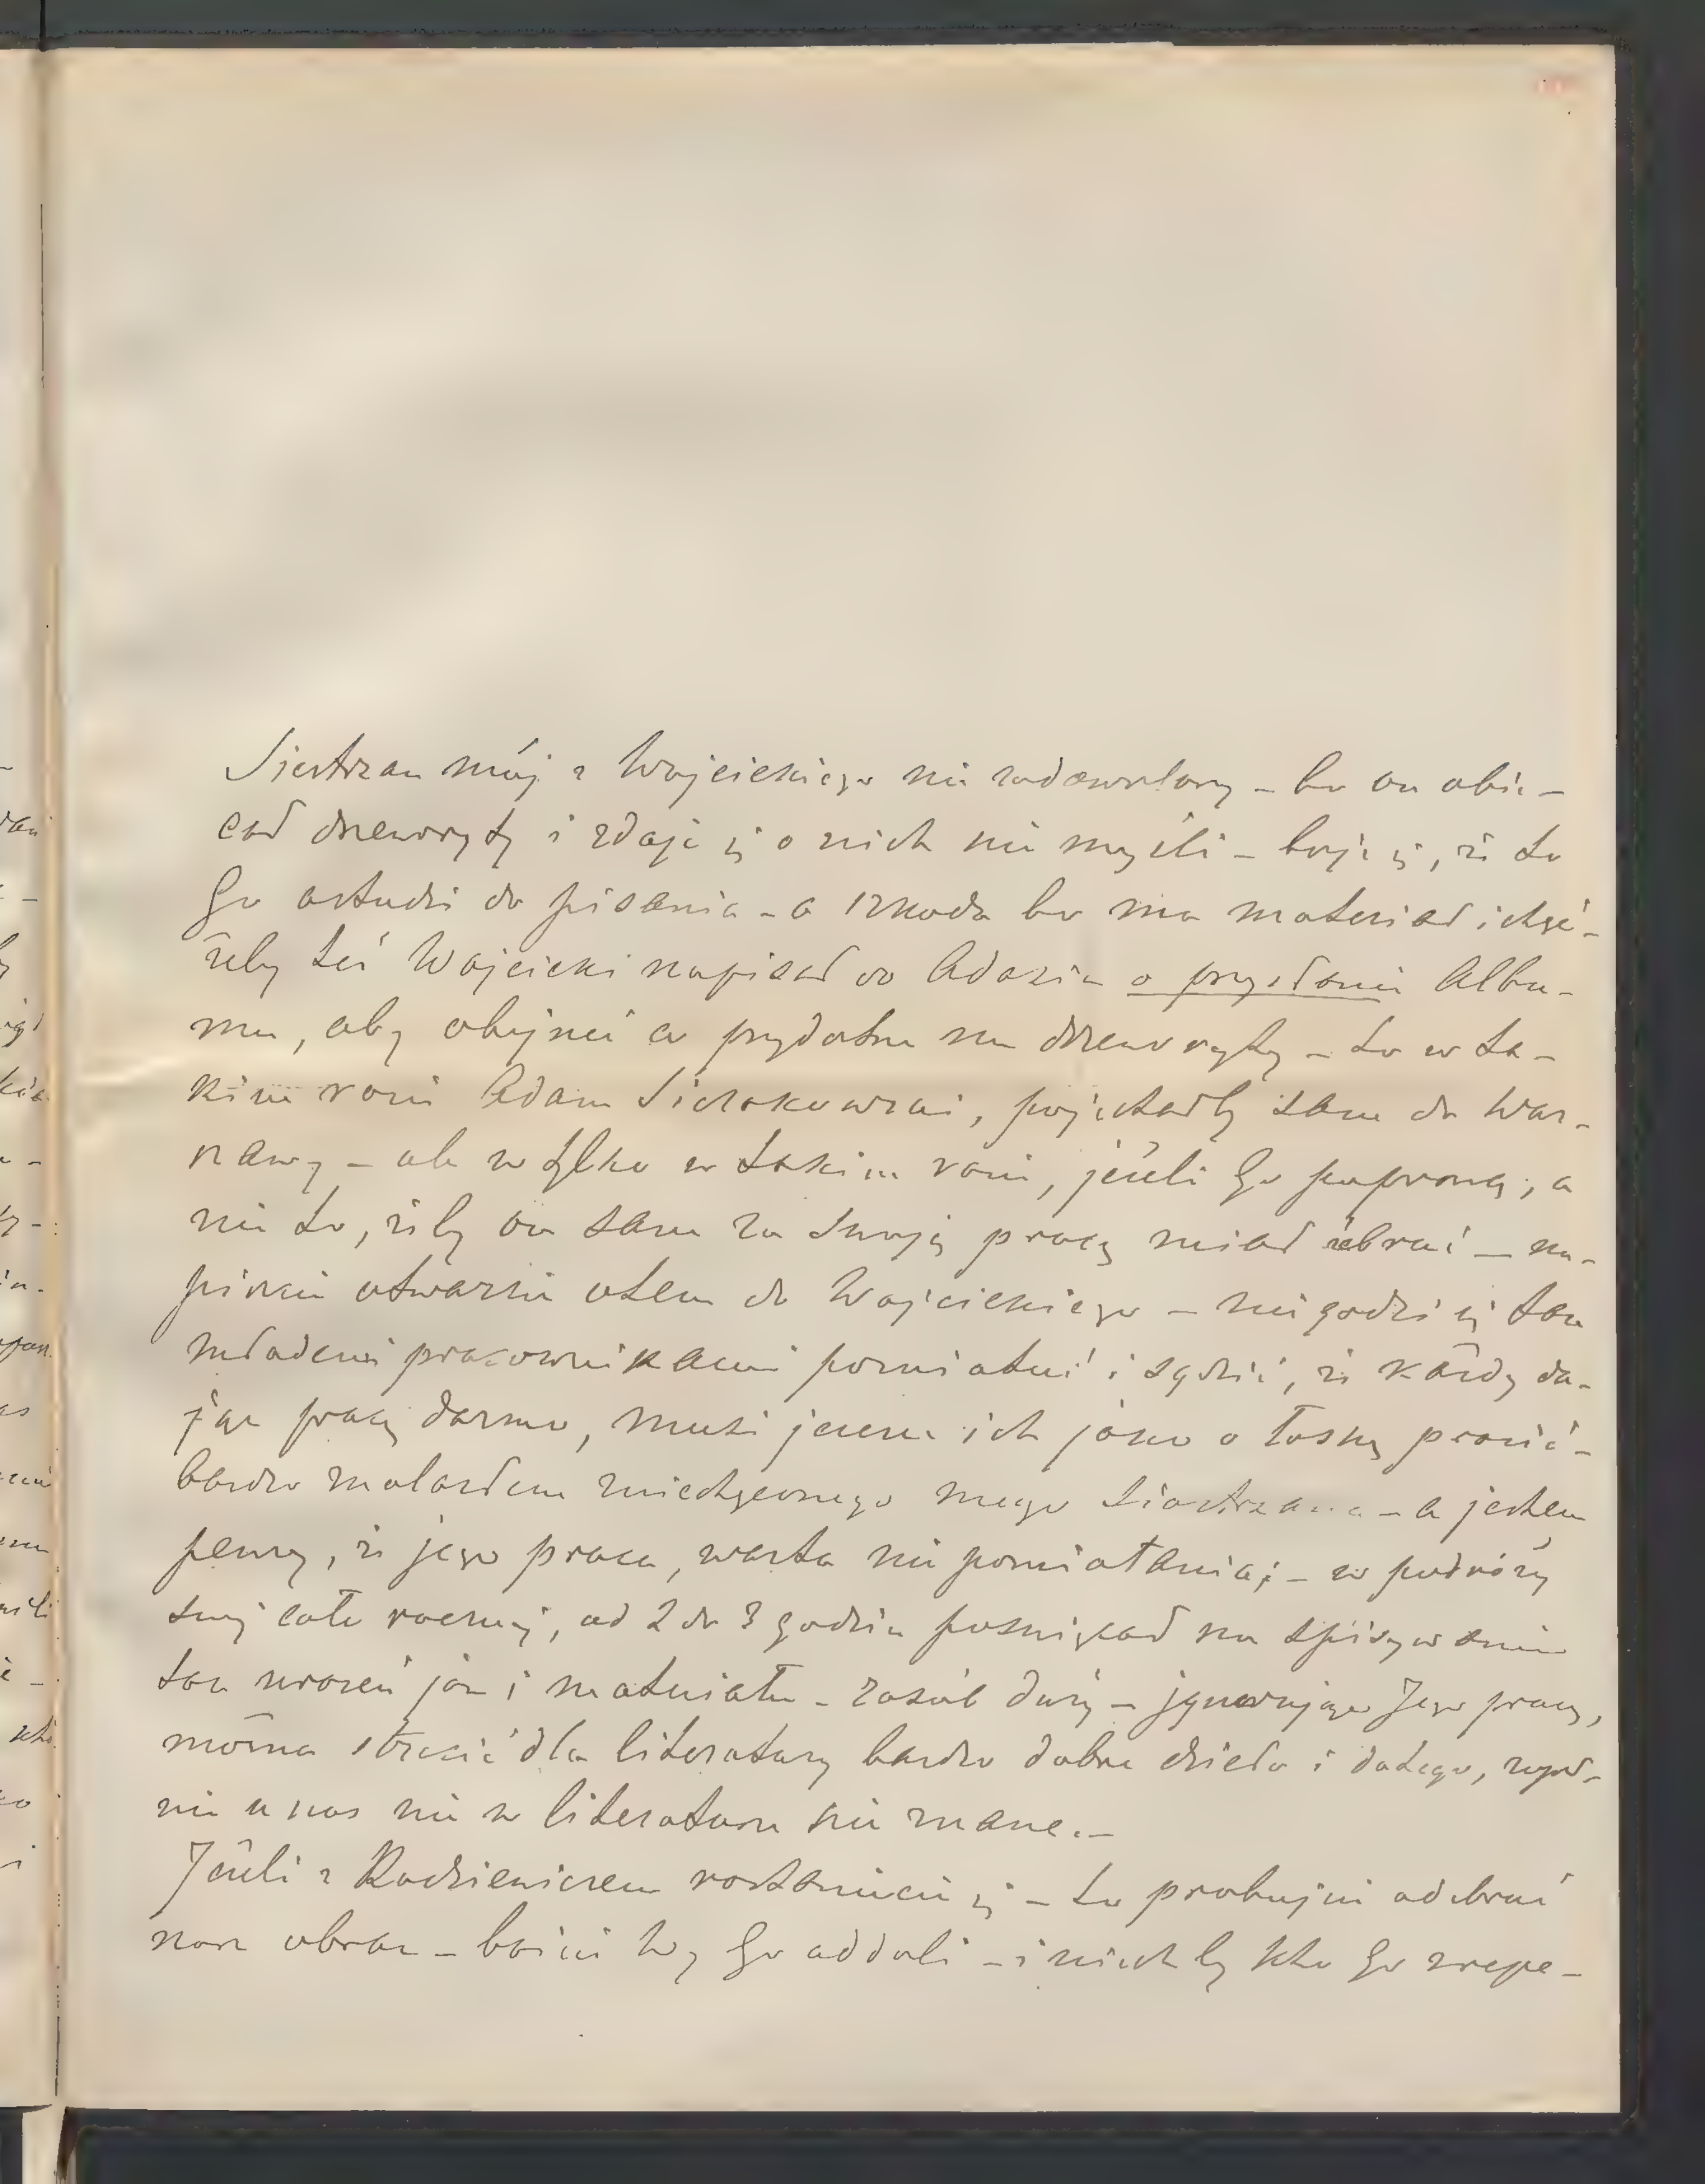 Siestrzan mój z Wojcickiego nie zadowolony – bo on obie-
cał drzewryty i zdaje się o nich nie myśli – boję się, że to
Go ostudzi do pisania – a szkoda bo ma materiał i chęć –
żeby też Wojcicki napisał do Adazia o przysłanie Albu-
mu, aby obejrzeć co przydatne na drzeworyty – to w ta-
kim razie Adam Sierakowski, pojechałby sam do War-
szawy – ale to tylko w takim razie, jeżeli Go poproszą, a
nie to, żeby on sam za swoją pracę miał żebrać – na-
piszcie otwarcie otem do Wojcickiego – nie godzi się tak
młodemi pracownikami pomiatać i sądzić, że każdy da-
jąc pracę darmo, musi jeszcze ich jako o łaskę prosić –
bardzo znalazłem zniechęconego mego siostrzana – a jestem
pewny, że jego praca, warta nie pomiatania; – w podróży
swej cało rocznej, od 2 do 3 godzin poświęcał na spisywanie
tak wrażeń jak i materiału – zasób duży – ignorując Jego pracę,
można stracić dla literatury bardzo dobre dzieło i do tego, zupeł-
nie u nas nie w literaturze nie znane. –
Jeżeli z Rodziewiczem rozstaniecie się – to probujcie odebrać
nasz obraz – boście Wy Go oddali – i niechby kto Go zrepe-